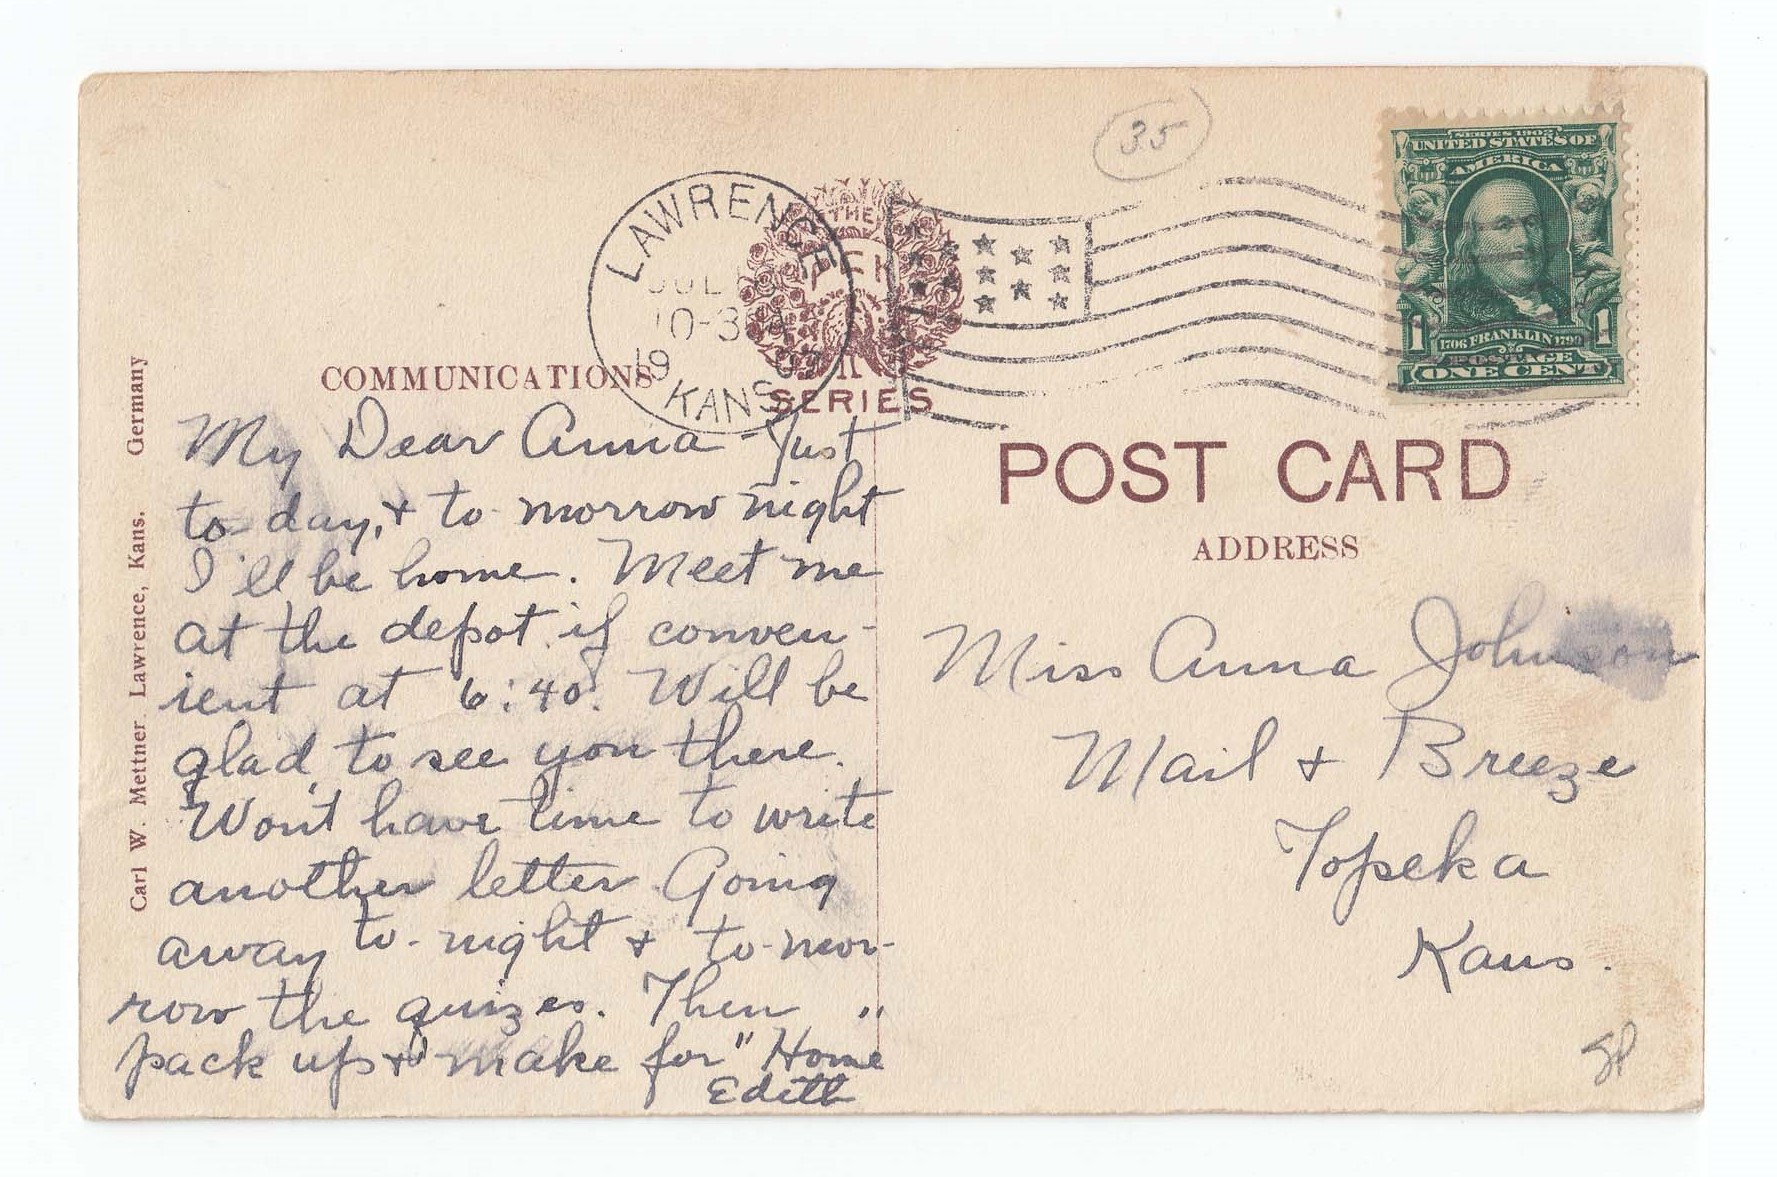 35
SERIES 1902
UNITED STATES OF
AMERICA
1706 FRANKLIN 1790
POSTAGE
1 ONE CENT 1
LAWRENCE
JUL
10-3
19
KANS
THE
SERIES
COMMUNICATIONS.
POST CARD
ADDRESS
Carl W. Mettner. Lawrence, Kans. Germany
My Dear Anna - Just
to day, + to-morrow night
I'll be home. Meet me
at the depot if conven-
ient at 6:40. Will be
glad to see you there.
Won't have time to write
another letter. Going
away to-night + to-mor-
row the quizes. Then
pack up + make for "Home"
Edith
Miss Anna Johnson
Mail + Breeze
Topeka
Kans.